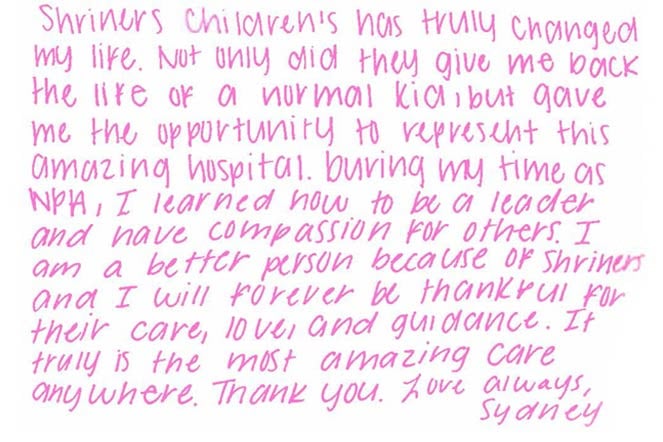 Shriners Children's has truly changed
my life. Not only did they give me back
the life of a normal kid, but gave
me the opportunity to represent this
amazing hospital. During my time as
NPA, I learned how to be a leader
and have compassion for others. I
am a better person because of Shriners
and I will forever be thankful for
their care, love, and guidance. It
truly is the most amazing care
anywhere. Thank you. Love always,
Sydney